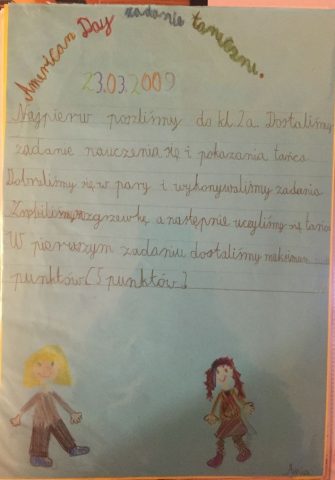 American Day zadanie taneczne.
23.03.2009
Najpierw poszliśmy do kl. 2a. Dostaliśmy
zadanie nauczenia się i pokazania tańca
Dobraliśmy się w pary i wykonywaliśmy zadania
Zrobiliśmy rozgrzewkę a następnie uczyliśmy się tańca
W pierwszym zadaniu dostaliśmy maksimum
punktów (5 punktów)
Ania